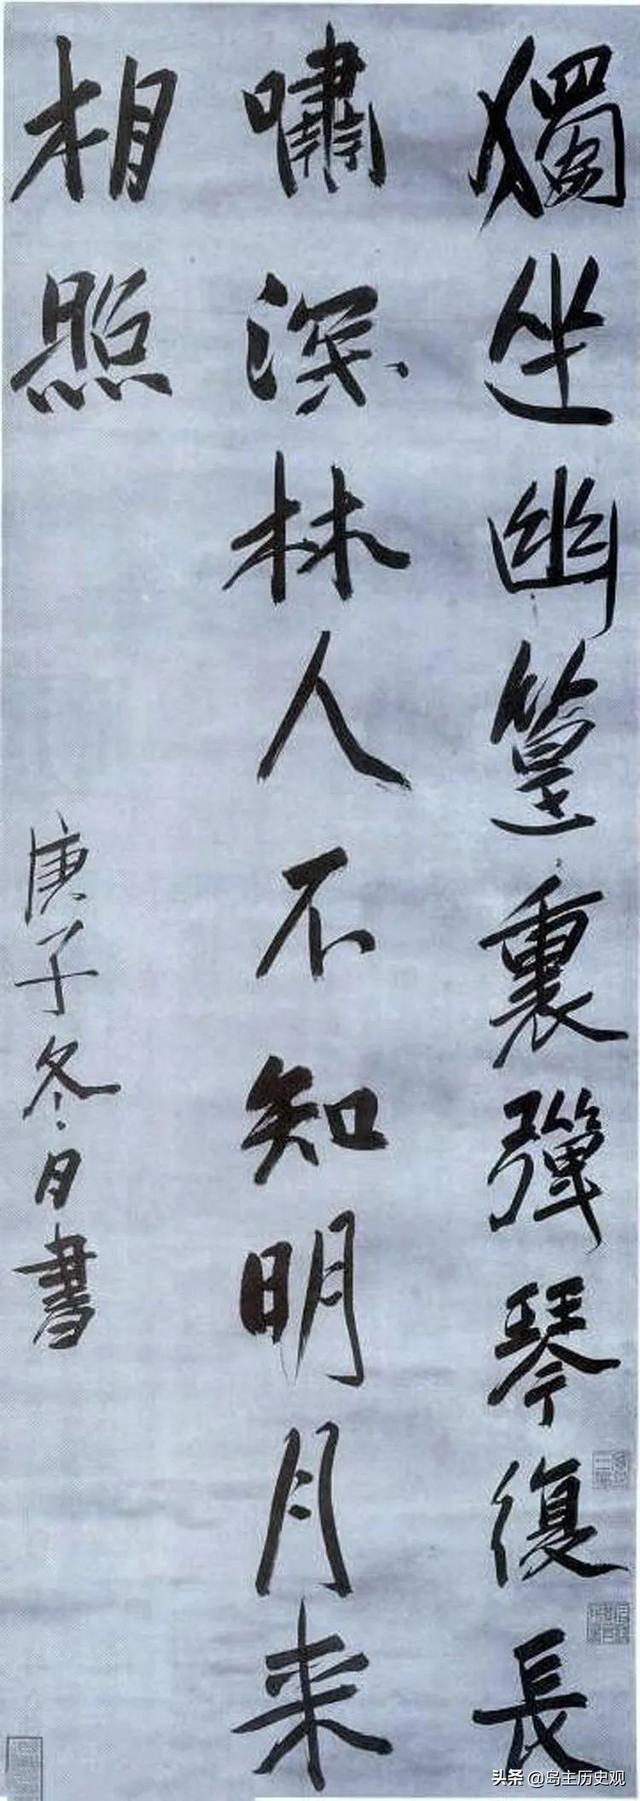 獨坐幽篁裏彈琴復長
嘯深林人不知明月来
相照
庚子冬日書
头条 @岛主历史观